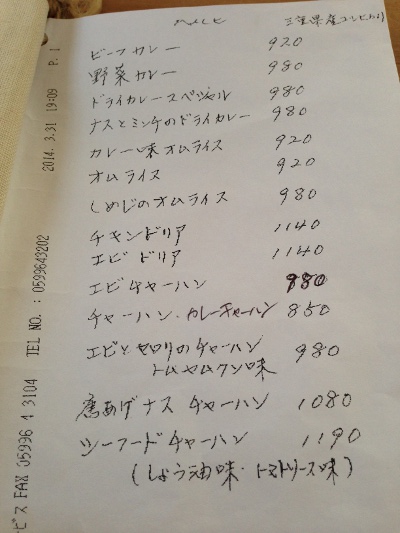 RICE 三重県産コシヒカリ
ビーフカレー 920
野菜カレー 980
ドライカレースペシャル 980
ナスとミンチのドライカレー 980
カレー味オムライス 920
オムライス 920
しめじのオムライス 980
チキンドリア 1140
エビドリア 1140
エビチャーハン 880
チャーハン・カレーチャーハン 850
エビとセロリのチャーハン 980
トムヤムクン味
唐あげナスチャーハン 1080
シーフードチャーハン 1190
(しょう油味・トマトソース味)
ービス FAX 05996 4 3104 TEL NO. : 0599643202 2014. 3.31 19:09 P. 1